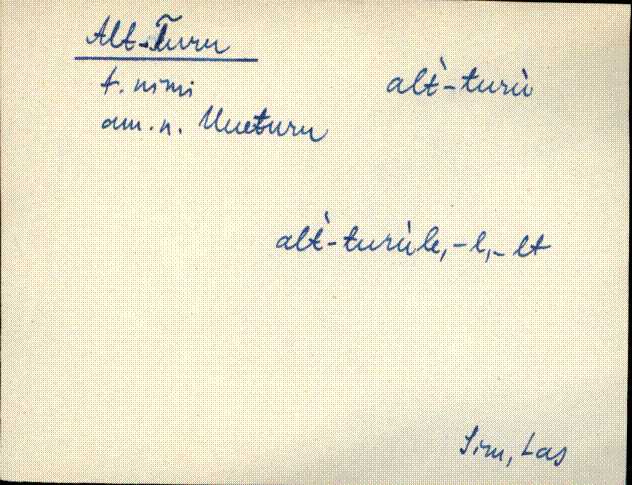 Alt-Turu
t. nimi
am. n. Uueturu
alt̀-turù
alt̀-turùle, -l, -lt
Sim, Las